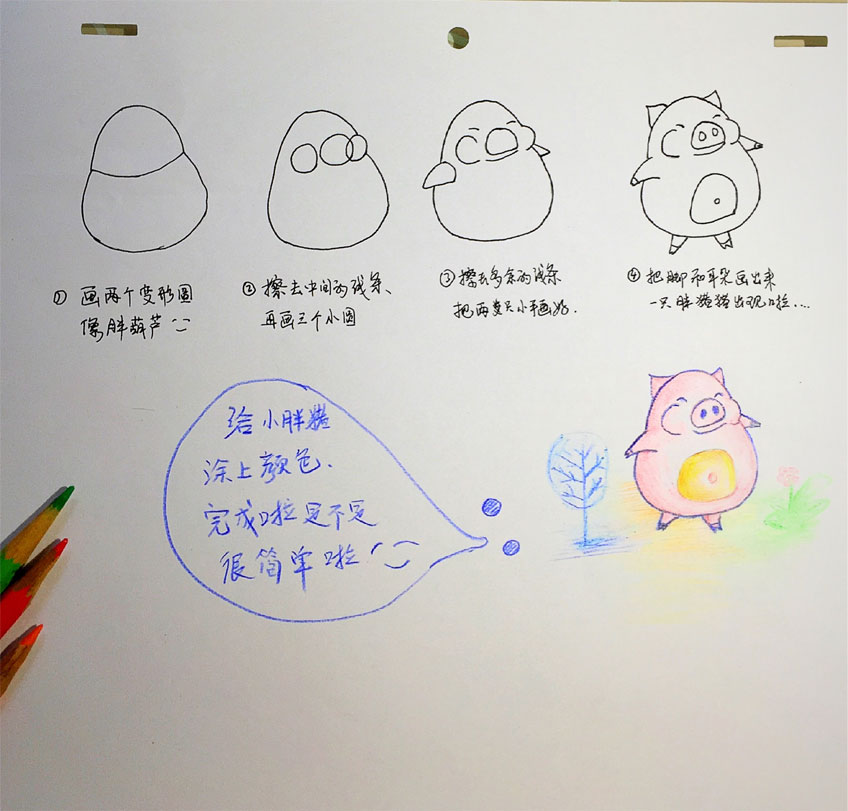 ① 画两个变形圆
像胖葫芦
② 擦去中间的线条、
再画三个小圆
③ 擦去多余的线条
把两隻小手画好.
④ 把脚和耳朵画出来
一只胖猪猪出现啦....
给小胖猪
涂上颜色.
完成啦是不是
很简单啦!